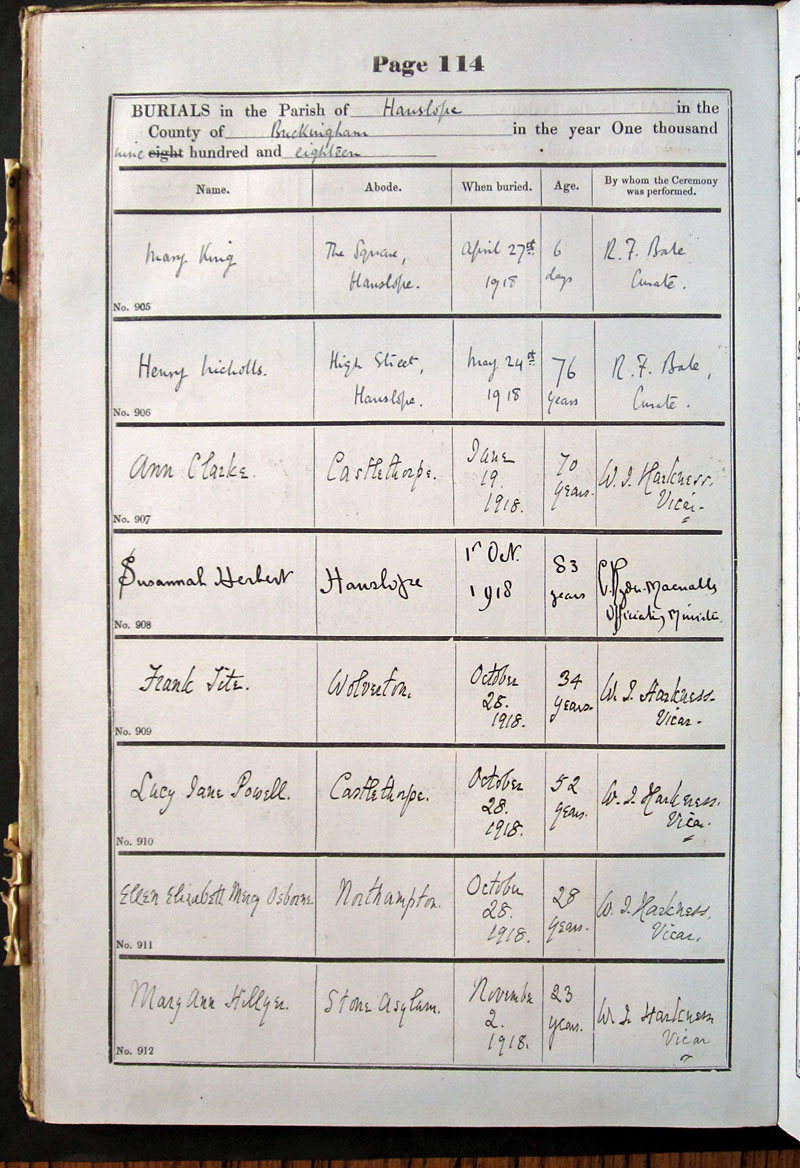 Page 114
BURIALS in the Parish of Hanslope in the
County of Buckingham in the year One thousand
nine eight hundred and eighteen
Name. Abode. When buried. Age. By whom the Ceremony was performed.
Mary King The Square, April 27st 6 R. F. Bale
Hanslope. 1918 days Curate.
No. 905
Henry Nicholls. High Street, May 24st 76 R. F. Bale,
Hanslope. 1918 years Curate.
No. 906
Ann Clarke. Castlethorpe. June 70 W. J. Harkness.
19. years. Vicar.
1918.
No. 907
Susannah Herbert Hanslope 1st Oct. 83
1918 years Officiating Minister
No. 908
Frank Tite. Wolverton. October 34 W. J. Harkness.
28. years. Vicar.
1918.
No. 909
Lucy Jane Powell. Castlethorpe. October 52 W. J. Harkness.
28. years. Vicar.
1918.
No. 910
Ellen Elizabeth Mercy Osborne. Northampton. October 28 W. J. Harkness.
28. years. Vicar.
1918.
No. 911
Mary Ann Hillyer. Stone Asylum. November 23 W. J. Harkness
2. years. Vicar
1918.
No. 912